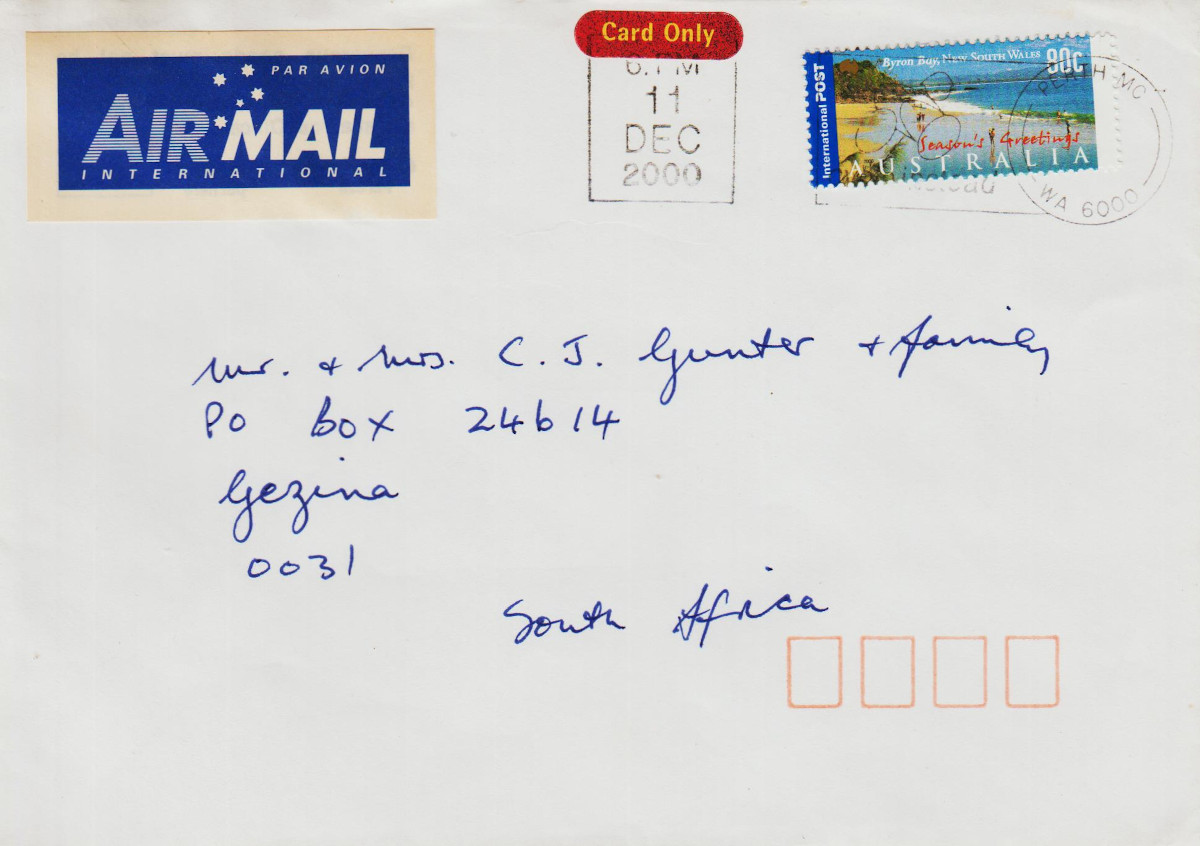 PAR AVION
AIR MAIL
INTERNATIONAL
Card Only
6.PM
11
DEC
2000
International POST
Byron Bay, NEW SOUTH WALES 80c
Season's Greetings
AUSTRALIA
PERTH MC
WA 6000
Mr. + Mrs. C. J. Gunter + family
PO Box 24614
Gezina
0031
South Africa